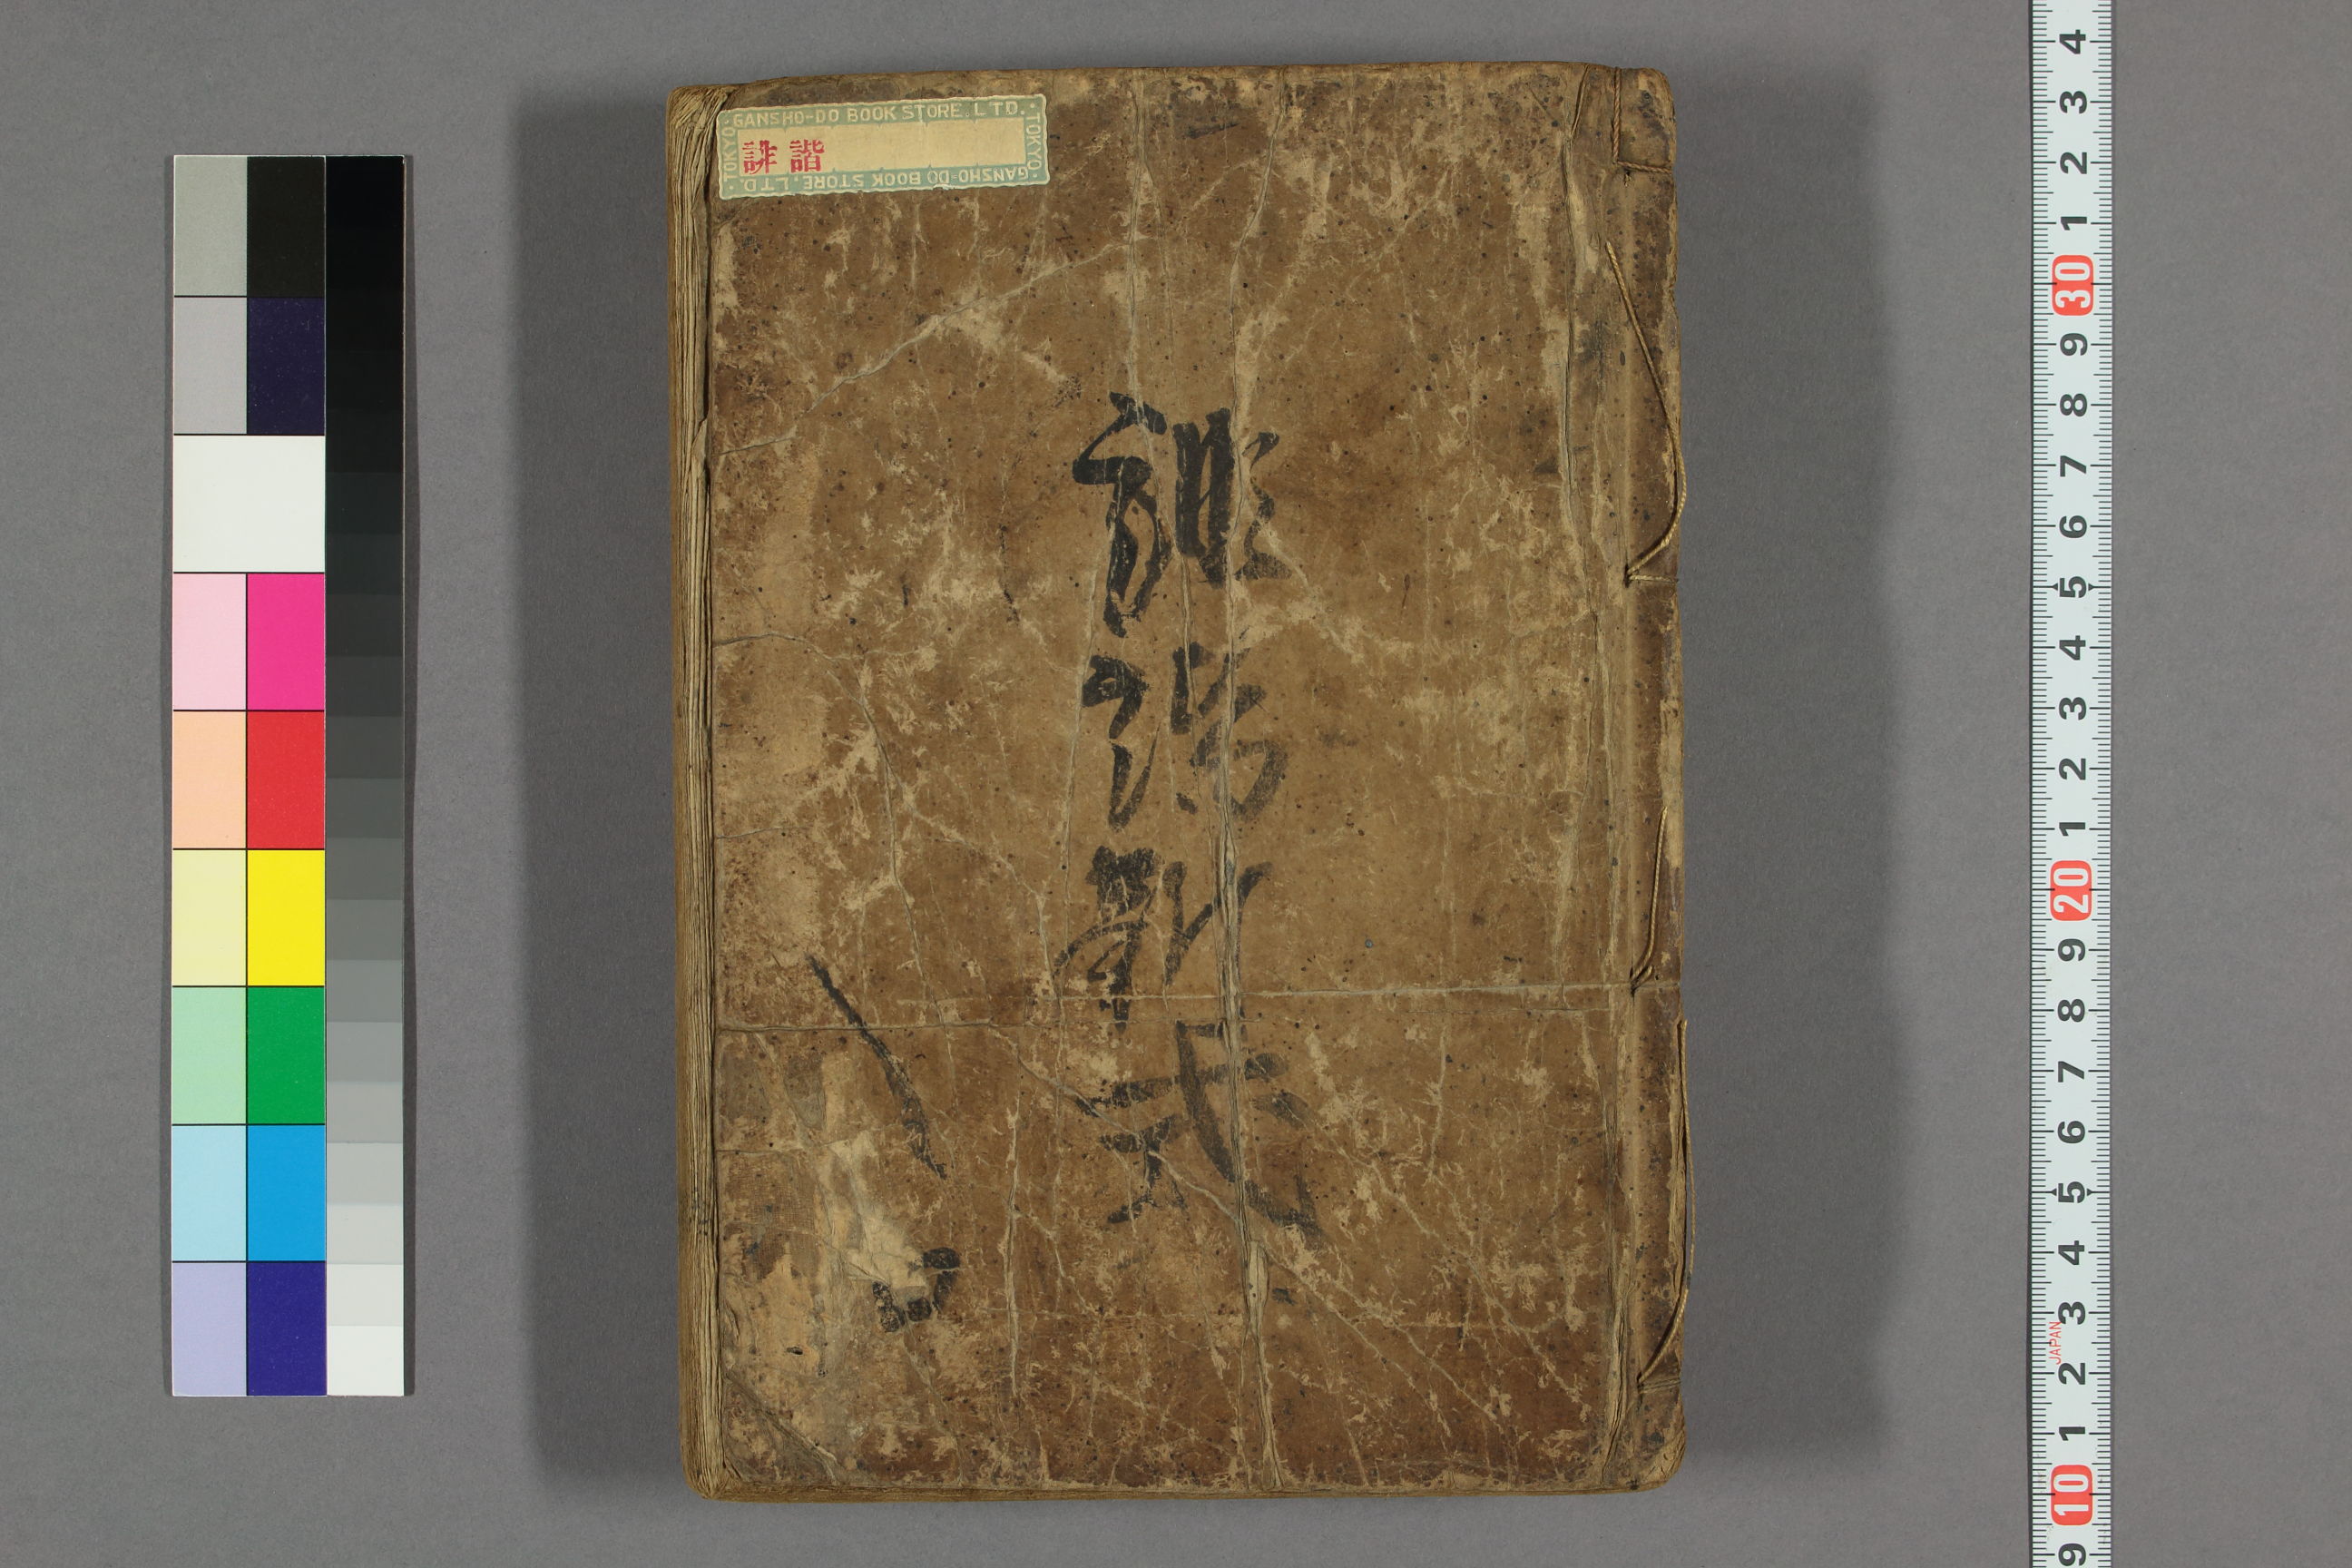 GANSHO-DO BOOK STORE. LTD.
TOKYO
誹諧
TOKYO
GANSHO-DO BOOK STORE, LTD.
誹諧新式
4
3
2
1
30
9
8
7
6
5
4
3
2
1
20
9
8
7
6
5
4
3
JAPAN
2
1
10
9